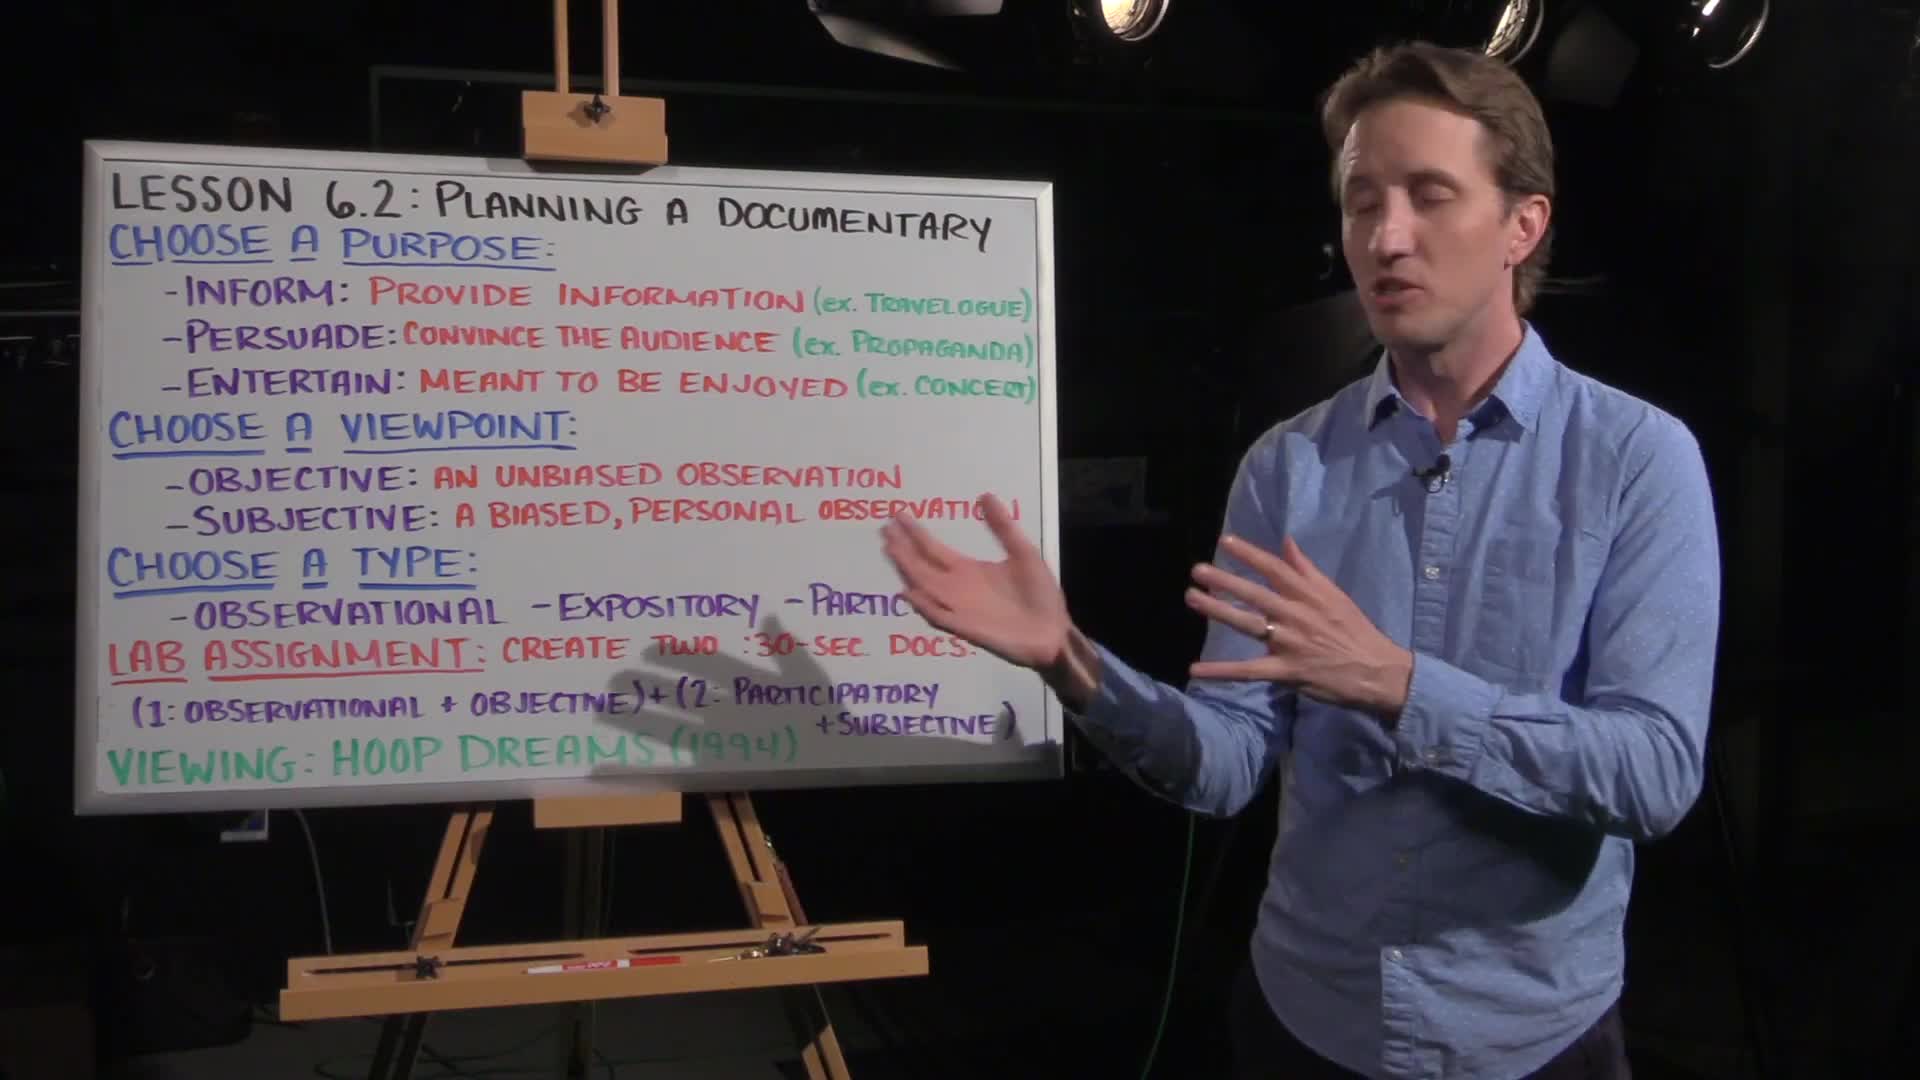 LESSON 6.2: PLANNING A DOCUMENTARY
CHOOSE A PURPOSE:
-INFORM: PROVIDE INFORMATION (ex. TRAVELOGUE)
-PERSUADE: CONVINCE THE AUDIENCE (ex. PROPAGANDA)
-ENTERTAIN: MEANT TO BE ENJOYED (ex. CONCERT)
CHOOSE A VIEWPOINT:
-OBJECTIVE: AN UNBIASED OBSERVATION
-SUBJECTIVE: A BIASED, PERSONAL OBSERVATION
CHOOSE A TYPE:
-OBSERVATIONAL -EXPOSITORY -PARTIC
LAB ASSIGNMENT: CREATE TWO :30-SEC DOCS:
(1: OBSERVATIONAL + OBJECTIVE)+(2: PARTICIPATORY
+SUBJECTIVE)
VIEWING: HOOP DREAMS (1994)